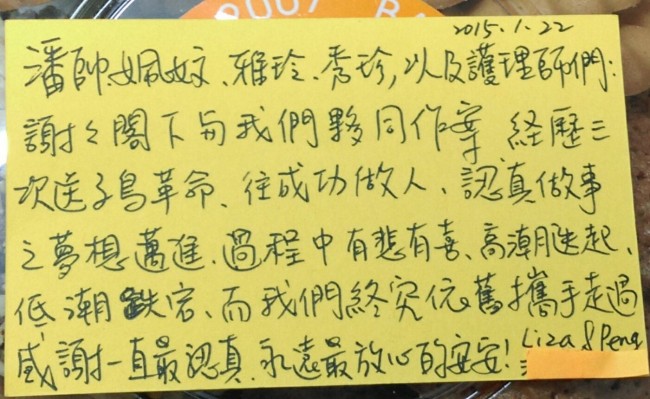 2007 B
2015.1.22
潘帥、姵妏、雅玲、秀珍,以及護理師們:
謝謝閣下与我們夥同作案 経歷三
次送子鳥革命、往成功做人、認真做事
之夢想邁進、過程中有悲有喜、高潮迭起、
低潮跌宕、而我們終究依舊攜手走過
感謝一直最認真、永遠最放心的安安!
Liza & Peng